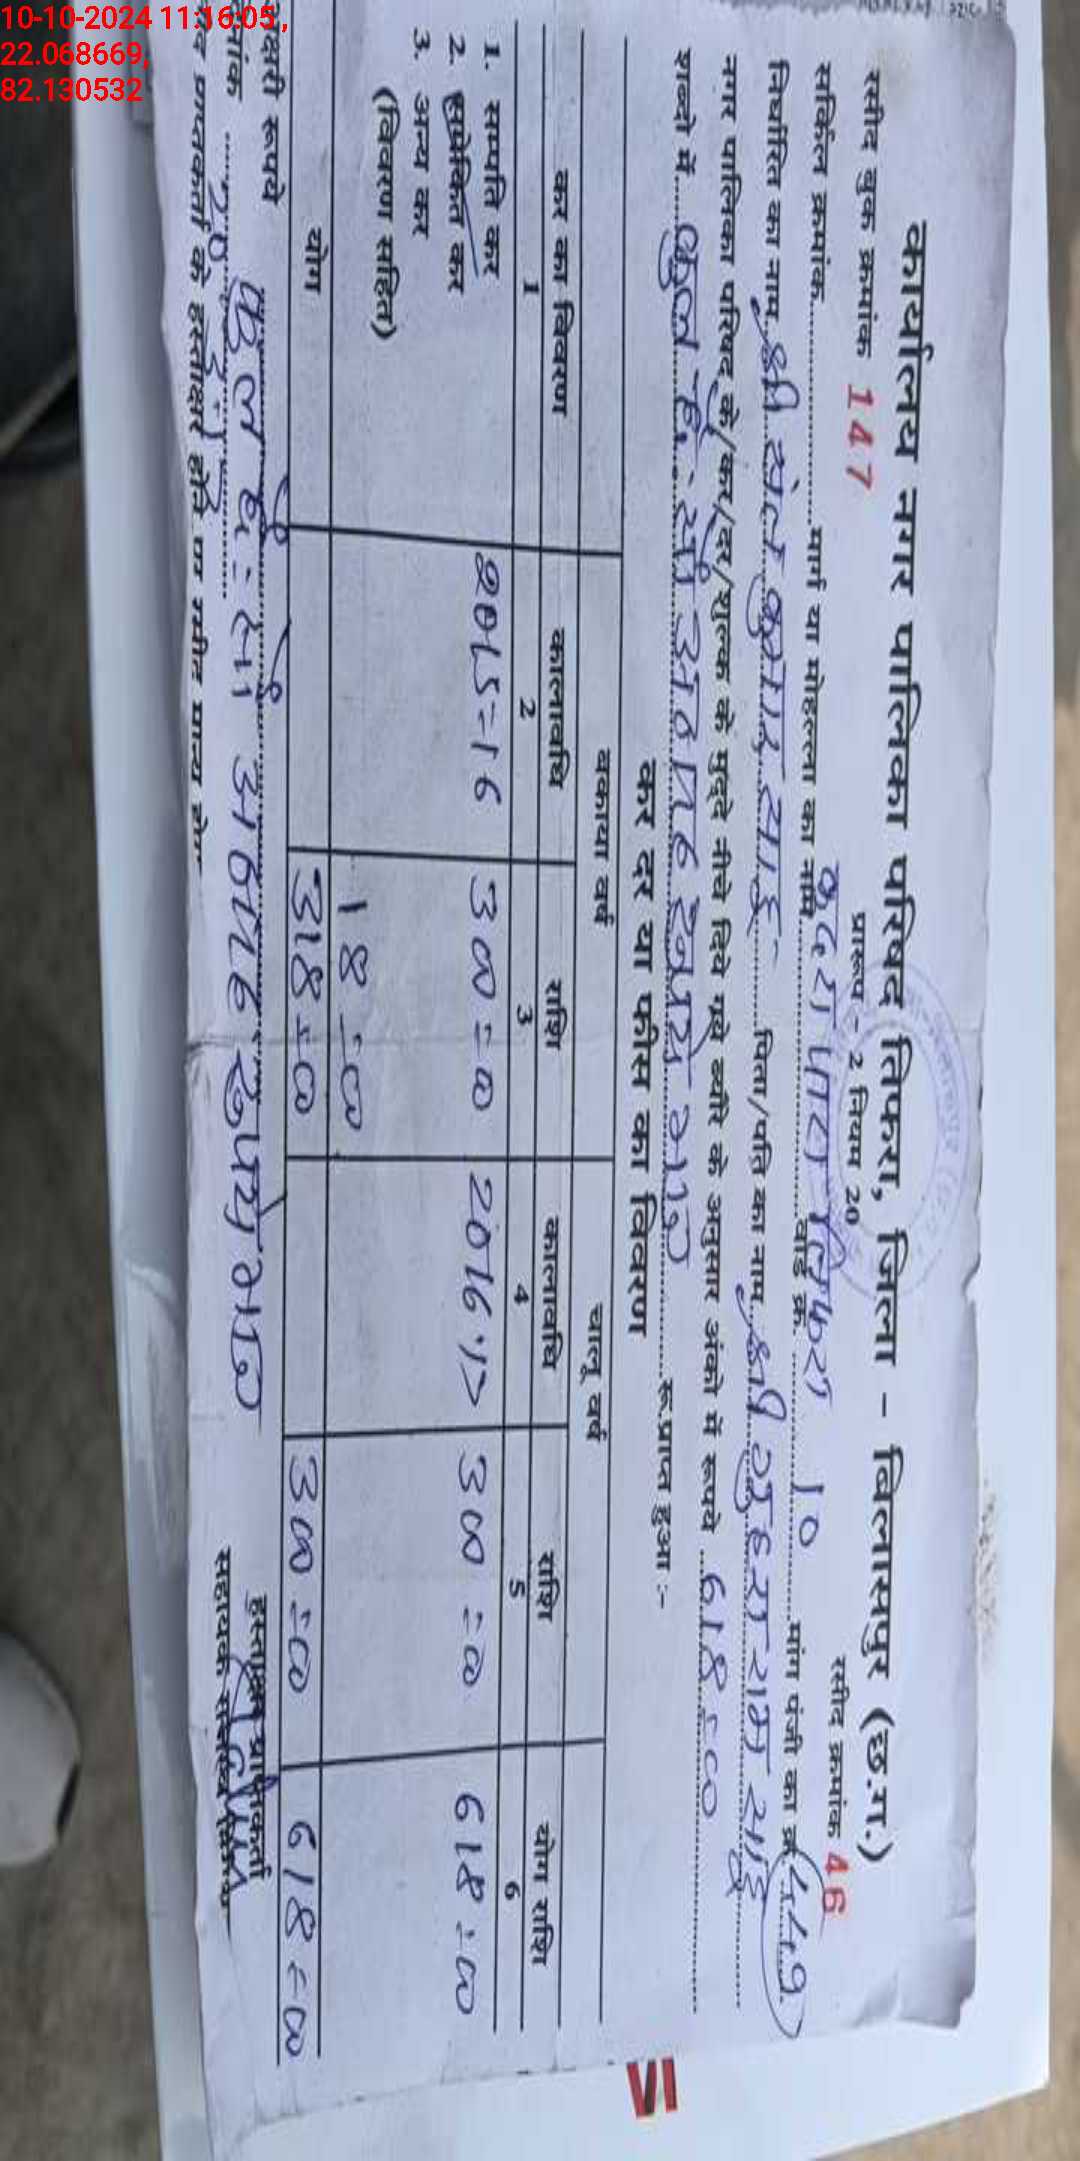 10-10-2024 11:16:05,
22.068669,
82.130532
कार्यालय नगर पालिका परिषद तिफरा, जिला - बिलासपुर (छ.ग.)
प्रारूप - 2 नियम 20
रसीद बुक क्रमांक 147 रसीद क्रमांक 46
सर्किल क्रमांक मार्ग या मोहल्ला का नाम तिफरा वार्ड क्र. 10 मांग पंजी का क्र.
निर्धारित का नाम श्री संत कुमार साहू पिता/पति का नाम श्री राम साहू
नगर पालिका परिषद के/कर/दर/शुल्क के मुद्दे नीचे दिये गये ब्यौरे के अनुसार अंको में रूपये 618=00
शब्दो में कुल छः सौ अठारह रूपये मात्र रू.प्राप्त हुआ :-
कर दर या फीस का विवरण
बकाया वर्ष चालू वर्ष
कर का विवरण कालावधि राशि कालावधि राशि योग राशि
1 2 3 4 5 6
1. सम्पत्ति कर
2. समेकित कर 2015=16 300=00 2016-17 300=00 618=00
3. अन्य कर
(विवरण सहित) 18=00
योग 318=00 300=00 618=00
अक्षरी रूपये कुल छः सौ अठारह रूपये मात्र
हस्ताक्षर प्राप्तकर्ता
प्राप्तकर्ता के हस्ताक्षर होने पर रसीद मान्य होगा